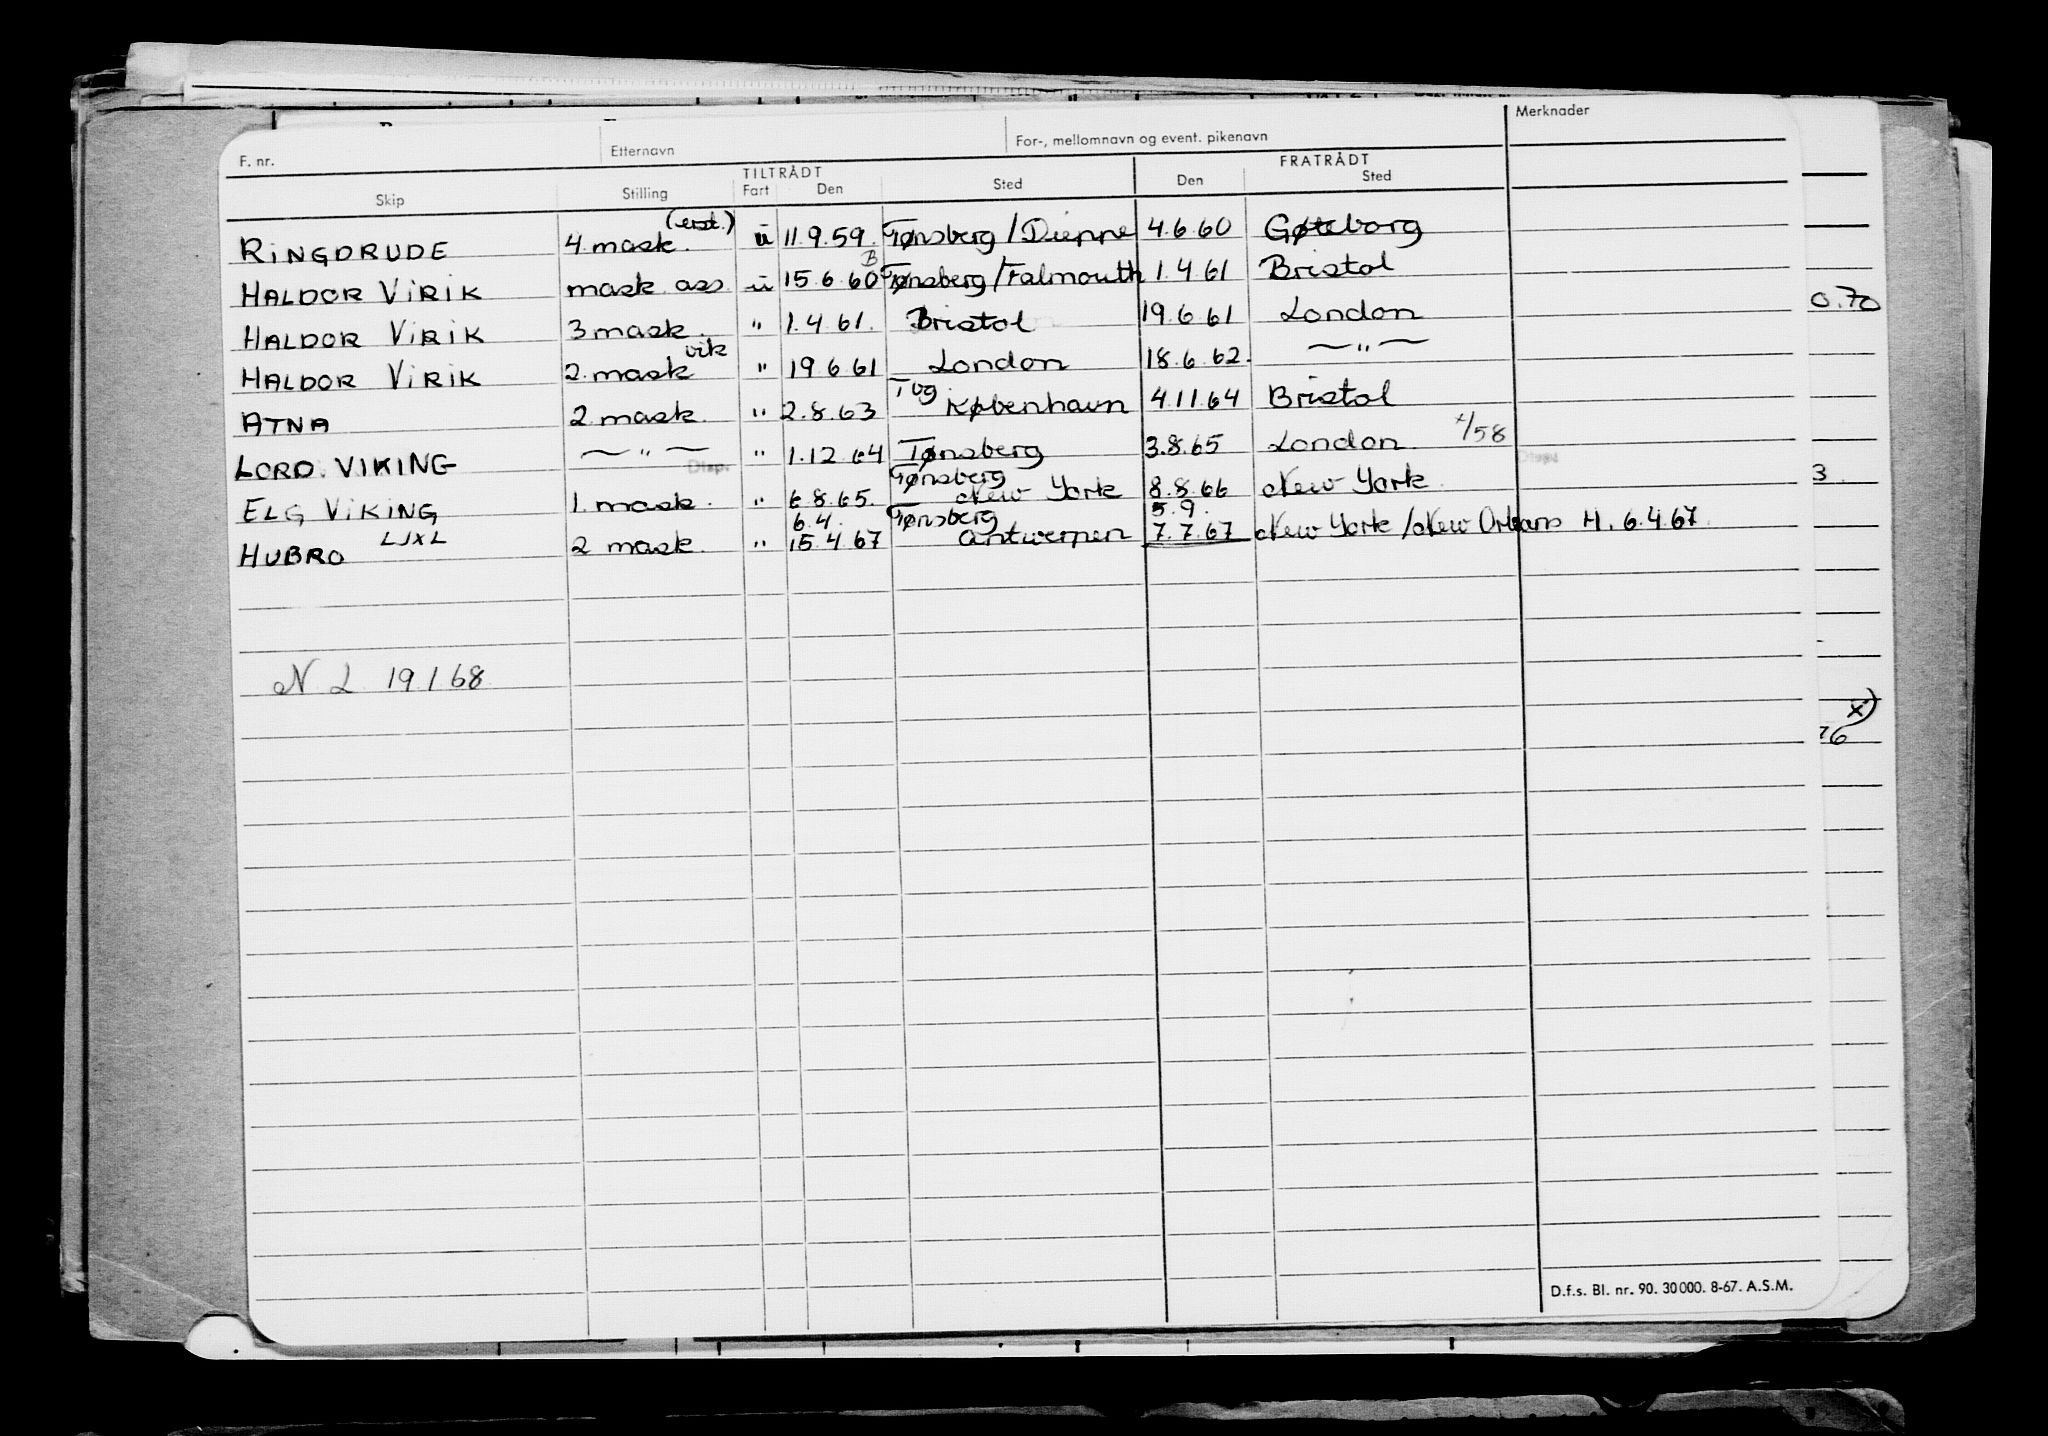 Merknader
F. nr. Etternavn For-, mellomnavn og event. pikenavn
TILTRÅDT FRATRÅDT
Skip Stilling Fart Den Sted Den Sted
(erst.)
RINGDRUDE 4. mask. ü 11.9.59. Tønsberg/Dieppe 4.6.60 Gøteborg
B
HALDOR VIRIK mask ass ü 15.6.60 Tønsberg/Falmouth 1.4.61 Bristol
HALDOR VIRIK 3 mask. " 1.4.61. Bristol 19.6.61 London
vik
HALDOR VIRIK 2. mask " 19.6.61 London 18.6.62. — " —
Tbg
ATNA 2. mask. " 2.8.63 København 4.11.64 Bristol
LORD VIKING — " — " 1.12.64 Tønsberg 3.8.65 London. x/58
Disp. Disp.
Tønsberg
ELG VIKING 1. mask. " 6.8.65. New York 8.8.66 New York.
6.4. Tønsberg 5.9.
HUBRO LJXL 2 mask. " 15.4.67 Antwerpen 7.7.67 New York/New Orleans H. 6.4.67.
N L 19.1.68
0.70
3.
x)
76
D.f.s. Bl. nr. 90. 30 000. 8-67. A.S.M.